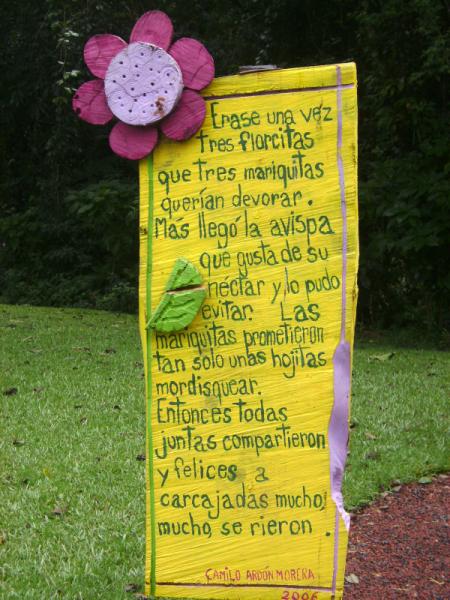 Erase una vez
tres florcitas
que tres mariquitas
querían devorar.
Más llegó la avispa
que gusta de su
néctar y lo pudo
evitar. Las
mariquitas prometieron
tan solo unas hojitas
mordisquear.
Entonces todas
juntas compartieron
y felices a
carcajadas mucho,
mucho, se rieron.
CAMILO ARDÓN MORERA
2006